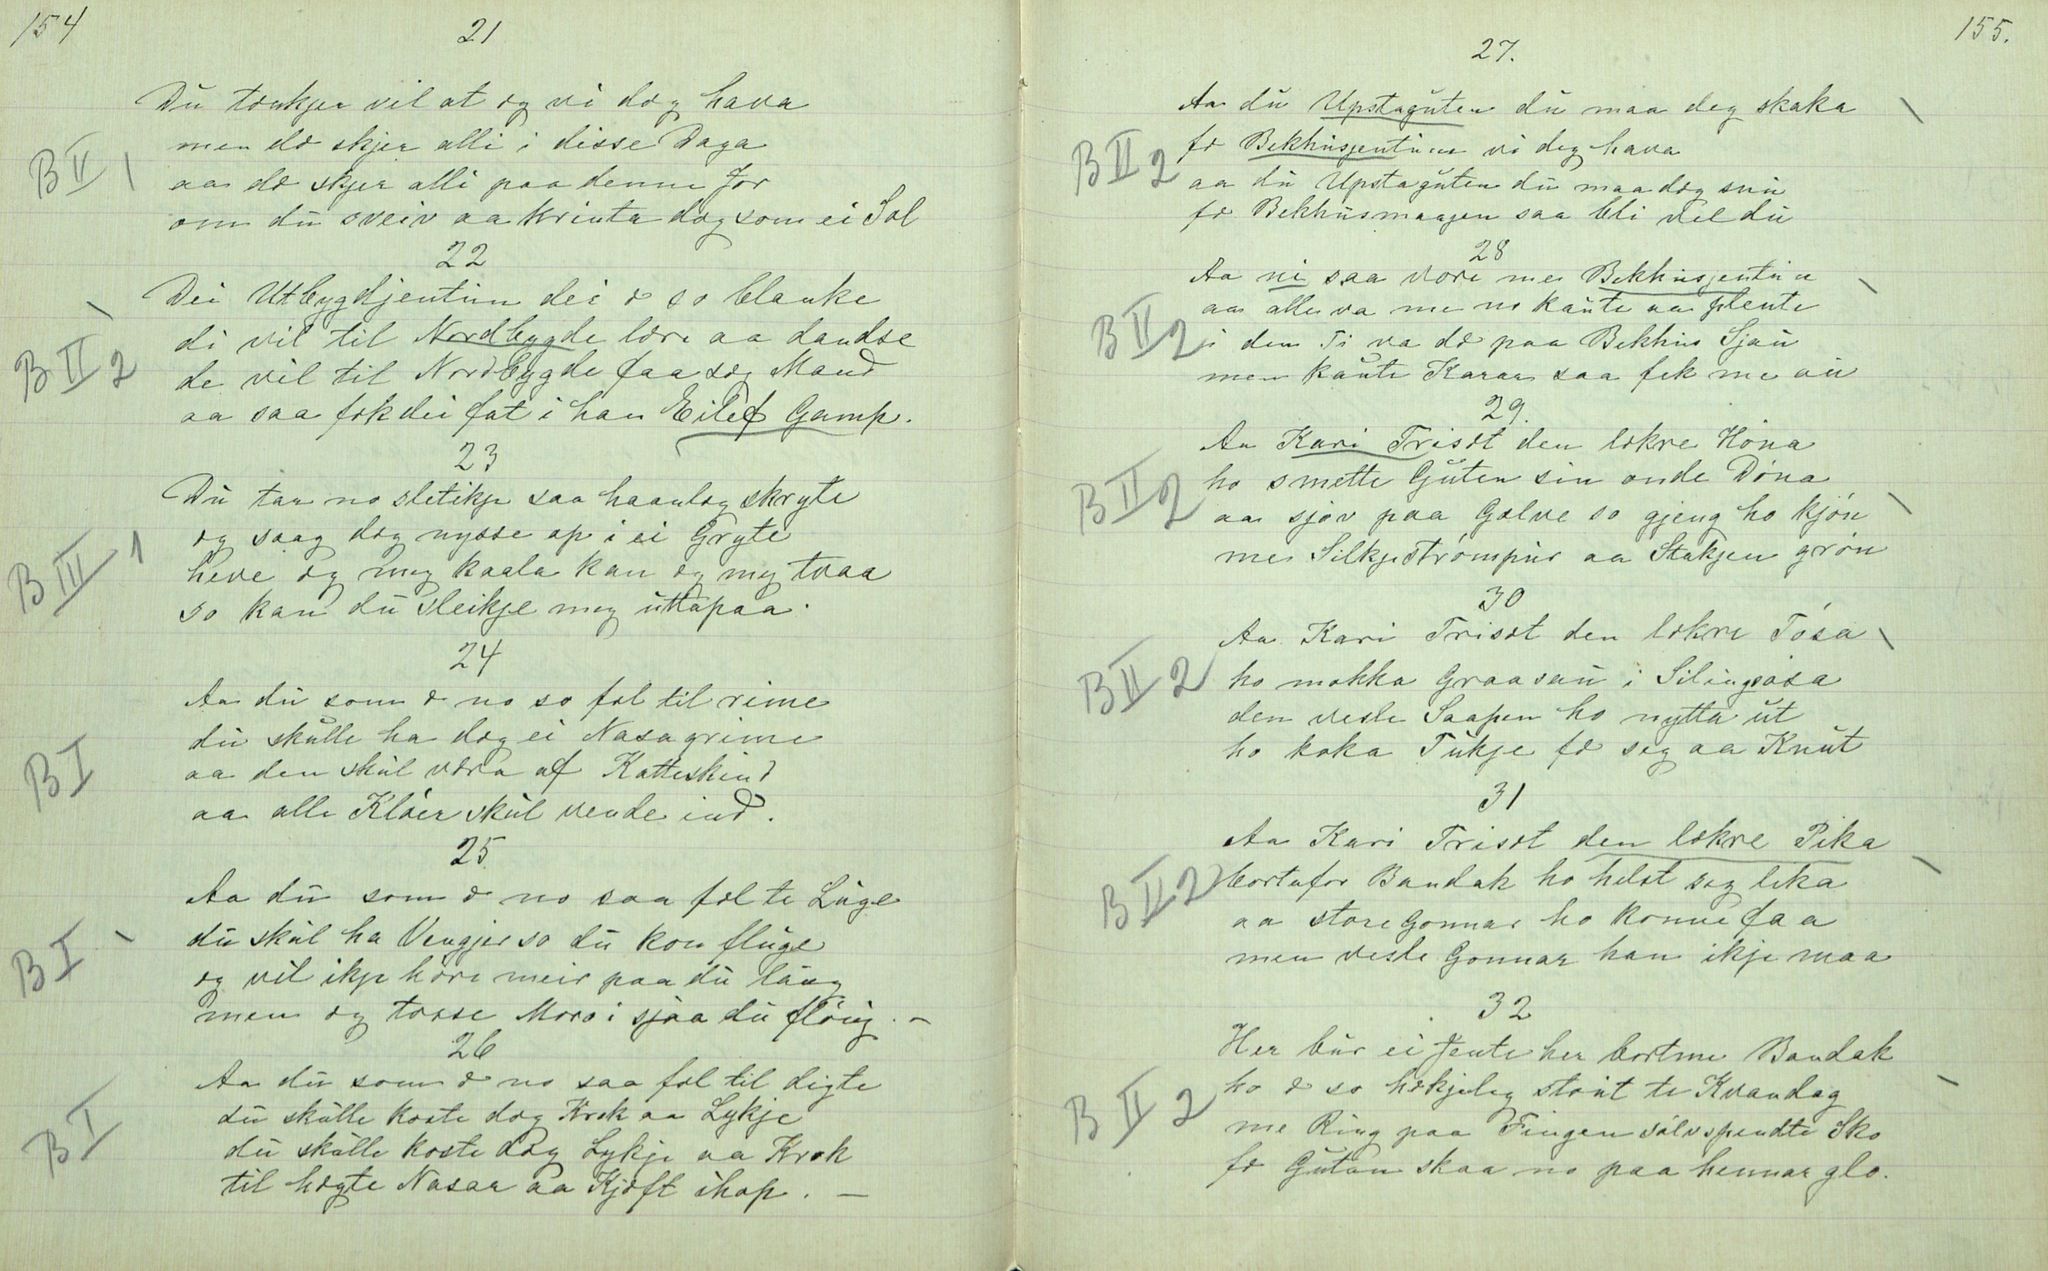 154
21
Du tænkjer vil at eg vi deg hava
men dæ skjer alli i disse Daga
B II 1
aa dæ skjer alli paa denne Jor
om du sveiv aa krinta deg som ei Sol
22
Dei Utbygdjentun dei æ so blanke
di vil til Nordbygde lære aa dandse
B II 2
de vil til Nordbygde faa seg Mand
aa saa fek dei fat i han Eilef Gamp.
23
Du tar no sletikje saa haanleg skryte
eg saag deg nysse op i ei Gryte
B III 1
heve eg meg kaala kan eg meg tvaa
so kan du sleikje meg uttapaa.
24
Aa du som æ no so fæl til rime
du skulle ha deg ei Nasagrime
B I
aa den skul væra af Katteskind
aa alle Klóer skul vende ind.
25
Aa du som æ no saa fæl te Luge
du skul ha Vengjer so du kon fluge
B I
eg vil ikje høre meir paa du laug
men eg tosse Moro i sjaa du flöug. —
26
Aa du som æ no saa fæl til digte
du skulle koste deg Krok aa Lykje
B I
du skulle koste deg Lykje aa Krok
til hegte Nasar aa Kjæft ihop. —
155.
27.
Aa du Upstaguten du maa deg skaka
fe Bekhusjentun vi deg hava
B II 2
aa du Upstaguten du maa deg snu
fe Bekhusmaagen saa bli vel du
28
Aa ni saa vore me Bekhusjentun
aa alle va me no kaute aa plente
B II 2
i den Ti va dæ paa Bekhus Sjau
men kaute Karar saa fek me au
29.
Aa Kari Trisæt den lekre Hóna
ho smette Guten sin onde Dóna
B II 2
aa sjøv paa Golve so gjeng ho kjón
me Silkjestrómpur aa Stakjen grón
30
Aa Kari Trisæt den lekre Tósa
B II 2
ho mokka Graasau i Silingsósa
den vesle Saapen ho nytta ut
ho koka Tukje fe seg aa Knut
31
Aa Kari Trisæt den lekre Pika
B II 2
bortafor Bandak ho helst seg lika
aa store Gonnar ho konne faa
men vesle Gonnar han ikje maa
32
Her bur ei Jente her bortme Bandak
ho æ so hekjeleg stóut te Kvandag
B II 2
me Ring paa Fingen sólvspendte Sko
fe Gutan skaa no paa hennar glo.